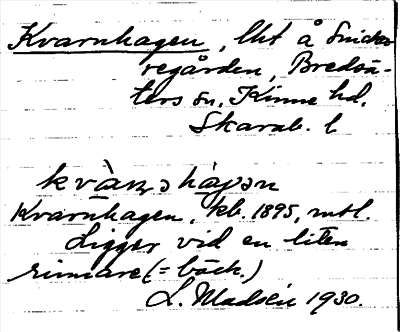 Kvarnhagen, lht å Snicka-
regården, Bredsä-
ters sn, Kinne hd.
Skarab. l
kvà̱ṇshàgən
Kvarnhagen, kb. 1895, mtl.
Ligger vid en liten
rinnare (= bäck.)
L. Madsén 1930.